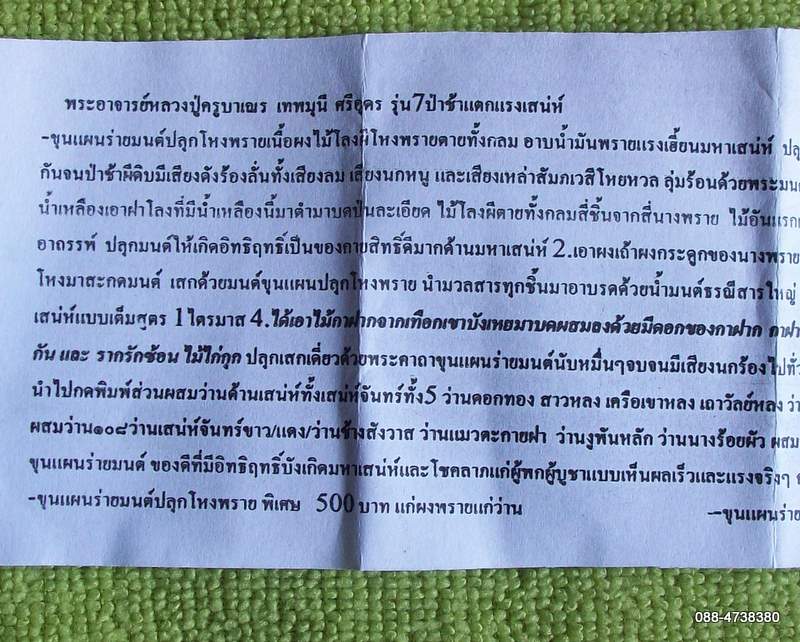 พระอาจารย์หลวงปู่ครูบาเฌร เทพมุนี ศรีอุดร รุ่น7ป่าช้าแตกแรงเสน่ห์
-ขุนแผนร่ายมนต์ปลุกโหงพรายเนื้อผงไม้โลงผีโหงพรายตายทั้งกลม อาบน้ำมันพรายแรงเฮี้ยนมหาเสน่ห์
กันจนป่าช้าผีดิบมีเสียงดังร้องลั่นทั้งเสียงลม เสียงนกหนู และเสียงเหล่าสัมภเวสีโหยหวล ลุ่มร้อนด้วยพระมนต
น้ำเหลืองเอาฝาโลงที่มีน้ำเหลืองนี้มาตำมาบดป่นละเอียด ไม้โลงผีตายทั้งกลมสี่ชิ้นจากสี่นางพราย ไม้อันแรก
อาถรรพ์ ปลุกมนต์ให้เกิดอิทธิฤทธิ์เป็นของกายสิทธิ์ดีมากด้านมหาเสน่ห์ 2.เอาผงเถ้าผงกระดูกของนางพราย
โหงมาสะกดมนต์ เสกด้วยมนต์ขุนแผนปลุกโหงพราย นำมวลสารทุกชิ้นมาอาบรดด้วยน้ำมนต์ธรณีสารใหญ่
เสน่ห์แบบเต็มสูตร 1ไตรมาส 4.ได้เอาไม้กาฝากจากเทือกเขาบังเหยมาบดผสมลงด้วยมีดอกของกาฝาก กาฝา
กัน และ รากรักซ้อน ไม้ไก่กุก ปลุกเสกเดี่ยวด้วยพระคาถาขุนแผนร่ายมนต์นับหมื่นๆจบจนมีเสียงนกร้องไปทั่ว
นำไปกดพิมพ์ส่วนผสมว่านด้านเสน่ห์ทั้งเสน่ห์จันทร์ทั้ง5 ว่านดอกทอง สาวหลง เครือเขาหลง เถาวัลย์หลง
ผสมว่าน๑๐๘ว่านเสน่ห์จันทร์ขาว/แดง/ว่านช้างสังวาส ว่านแมวตะกายฝา ว่านงูพันหลัก ว่านนางร้อยผัว ผสม
ขุนแผนร่ายมนต์ ของดีที่มีอิทธิฤทธิ์บังเกิดมหาเสน่ห์และโชคลาภแก่ผู้พกผู้บูชาแบบเห็นผลเร็วและแรงจริงๆ
-ขุนแผนร่ายมนต์ปลุกโหงพราย พิเศษ 500 บาท แก่ผงพรายแก่ว่าน
--ขุนแผนร่าย
088-4738380